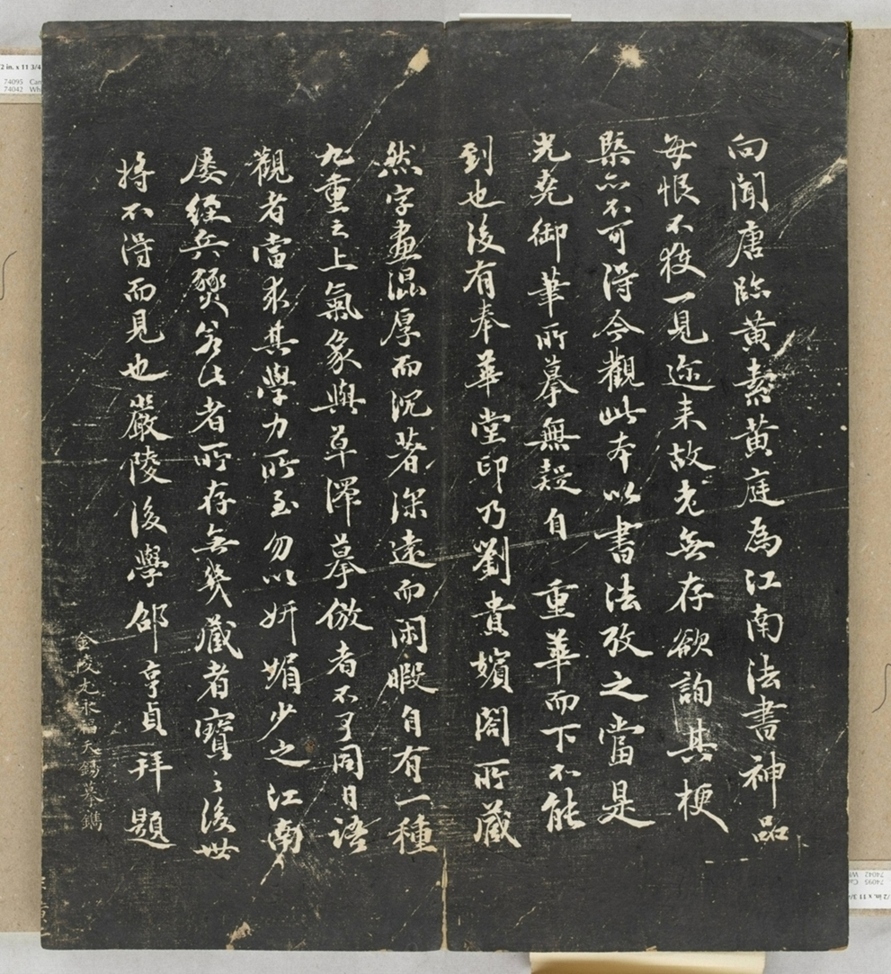 向聞唐臨黃素黃庭為江南法書神品
每恨不獲一見邇来故老無存欲詢其梗
槩亦不可得今觀此本以書法攷之當是
光堯御筆所摹無疑自 重華而下不能
到也後有奉華堂印乃劉貴嬪閣所藏
然字畫混厚而沉著深遠而閑暇自有一種
九重之上氣象與草澤摹倣者不可同日語
觀者當求其學力所至勿以妍媚少之江南
屡經兵燹若此者所存無幾藏者寶之後世
將不得而見也嚴陵後學邵亨貞拜題
金陵尤永福天錫摹鐫
/2 in. x 11 3/4
74095 Car
74042 Wh